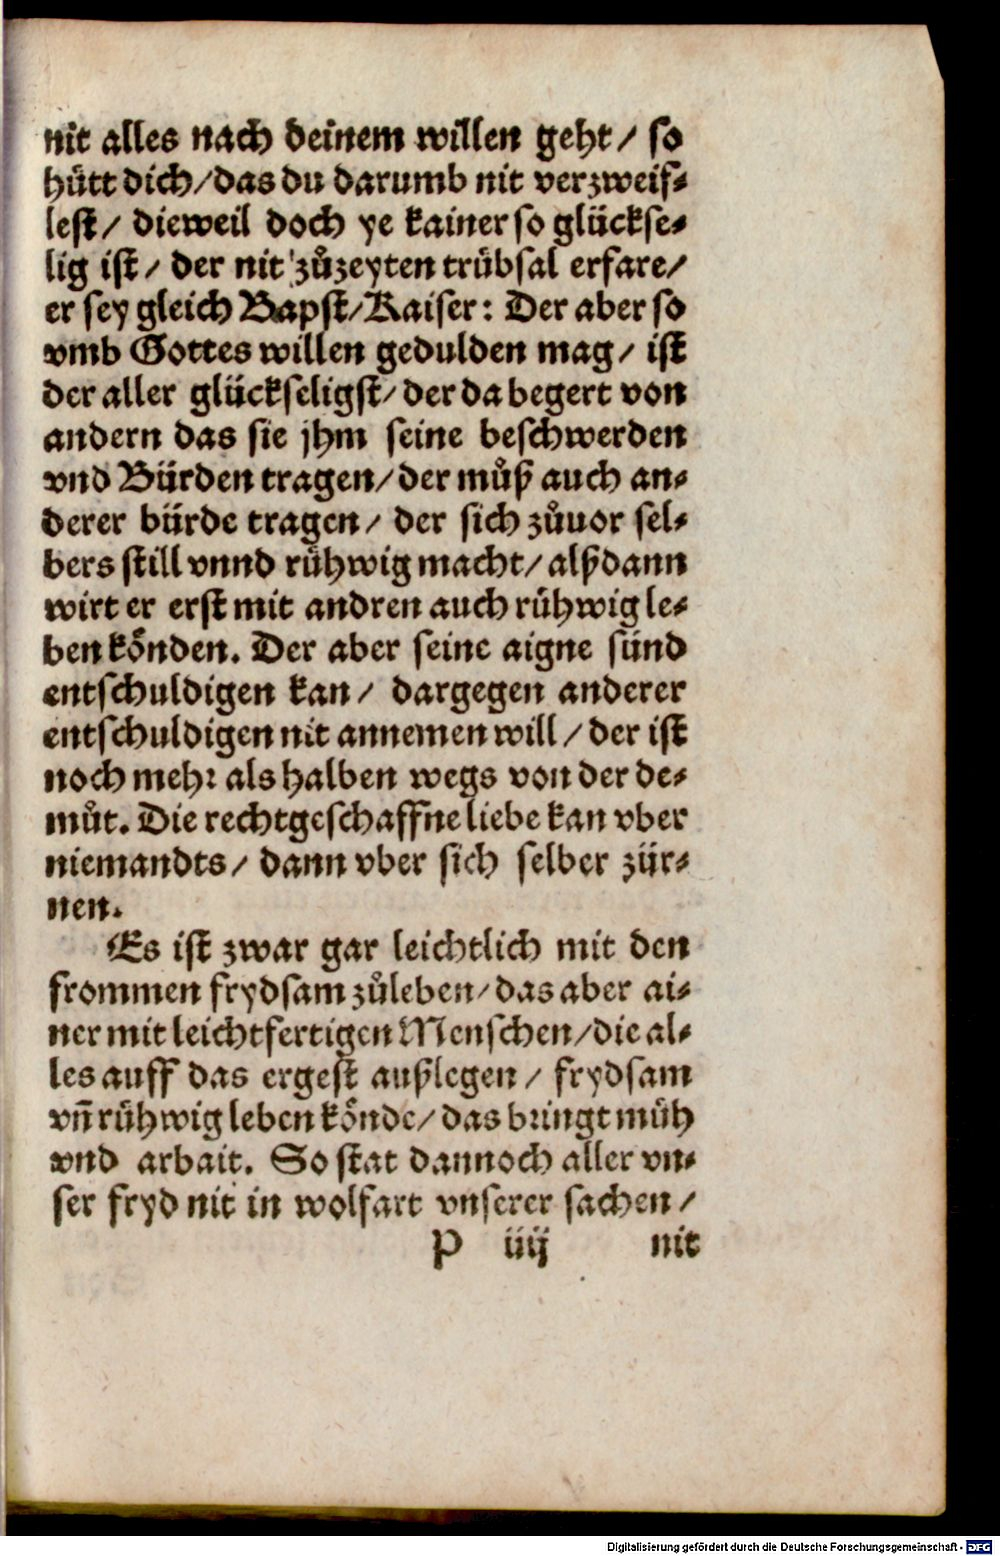 nit alles nach deinem willen geht / so
hütt dich / das du darumb nit verzweif⸗
lest / dieweil doch ye kainer so glückse⸗
lig ist / der nit zůzeyten trübsal erfare /
er sey gleich Bapst / Kaiser: Der aber so
vmb Gottes willen gedulden mag / ist
der aller glückseligst / der da begert von
andern das sie jhm seine beschwerden
vnd Bürden tragen / der můß auch an⸗
derer bürde tragen / der sich zůuor sel⸗
bers still vnnd rühwig macht / alßdann
wirt er erst mit andren auch rühwig le⸗
ben könden. Der aber seine aigne sünd
entschuldigen kan / dargegen anderer
entschuldigen nit annemen will / der ist
noch mehr als halben wegs von der de⸗
můt. Die rechtgeschaffne liebe kan vber
niemandts / dann vber sich selber zür⸗
nen.
Es ist zwar gar leichtlich mit den
frommen frydsam zůleben / das aber ai⸗
ner mit leichtfertigen Menschen / die al⸗
les auff das ergest außlegen / frydsam
vñ rühwig leben könde / das bringt müh
vnd arbait. So stat dannoch aller vn⸗
ser fryd nit in wolfart vnserer sachen /
P iiij nit
Digitalisierung gefördert durch die Deutsche Forschungsgemeinschaft - DFG